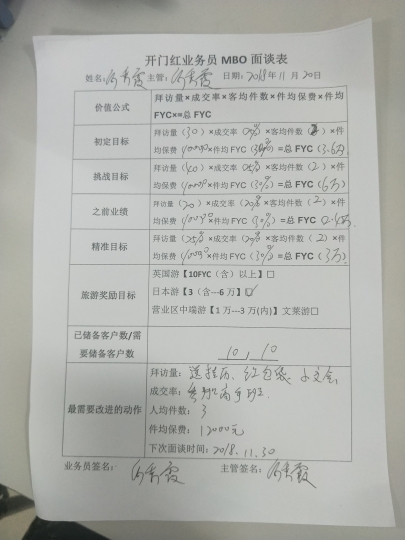 开门红业务员 MBO 面谈表
姓名: 主管: 日期: 2018年11月20日
价值公式
拜访量×成交率×客均件数×件均保费×件均
FYC×=总 FYC
初定目标
拜访量（30）×成交率（20%）×客均件数（2）×件
均保费（10000）×件均 FYC（30%）=总 FYC（3.6万）
挑战目标
拜访量（40）×成交率（25%）×客均件数（2）×件
均保费（10000）×件均 FYC（30%）=总 FYC（6万）
之前业绩
拜访量（20）×成交率（20%）×客均件数（2）×件
均保费（10000）×件均 FYC（30%）=总 FYC（2.4万）
精准目标
拜访量（25%）×成交率（20%）×客均件数（2）×件
均保费（10000）×件均 FYC（30%）=总 FYC（3万）
旅游奖励目标
英国游【10FYC（含）以上】□
日本游【3（含---6 万】☑
营业区中端游【1 万---3 万(内)】文莱游□
已储备客户数/需
要储备客户数
10 , 10
最需要改进的动作
拜访量: 送挂历、红包袋、
成交率:
人均件数: 3
件均保费: 12000元
下次面谈时间: 2018.11.30
业务员签名: 主管签名: